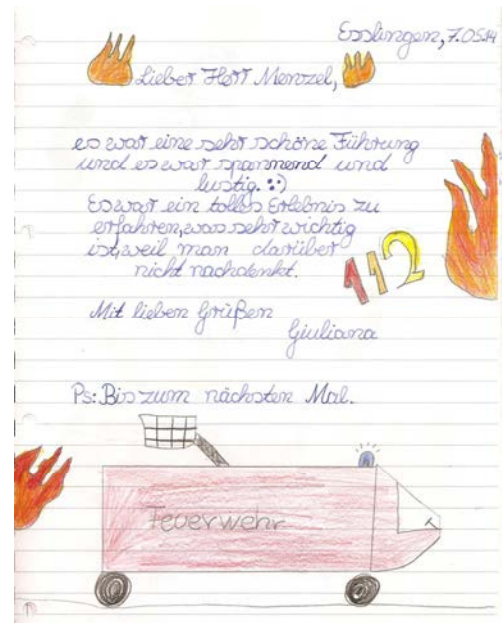 Esslingen, 7.05.14
Lieber Herr Menzel,
es war eine sehr schöne Führung
und es war spannend und
lustig. :)
Es war ein tolles Erlebnis zu
erfahren, was sehr wichtig
ist, weil man darüber
nicht nachdenkt.
112
Mit lieben Grüßen
Giuliana
Ps: Bis zum nächsten Mal.
Feuerwehr